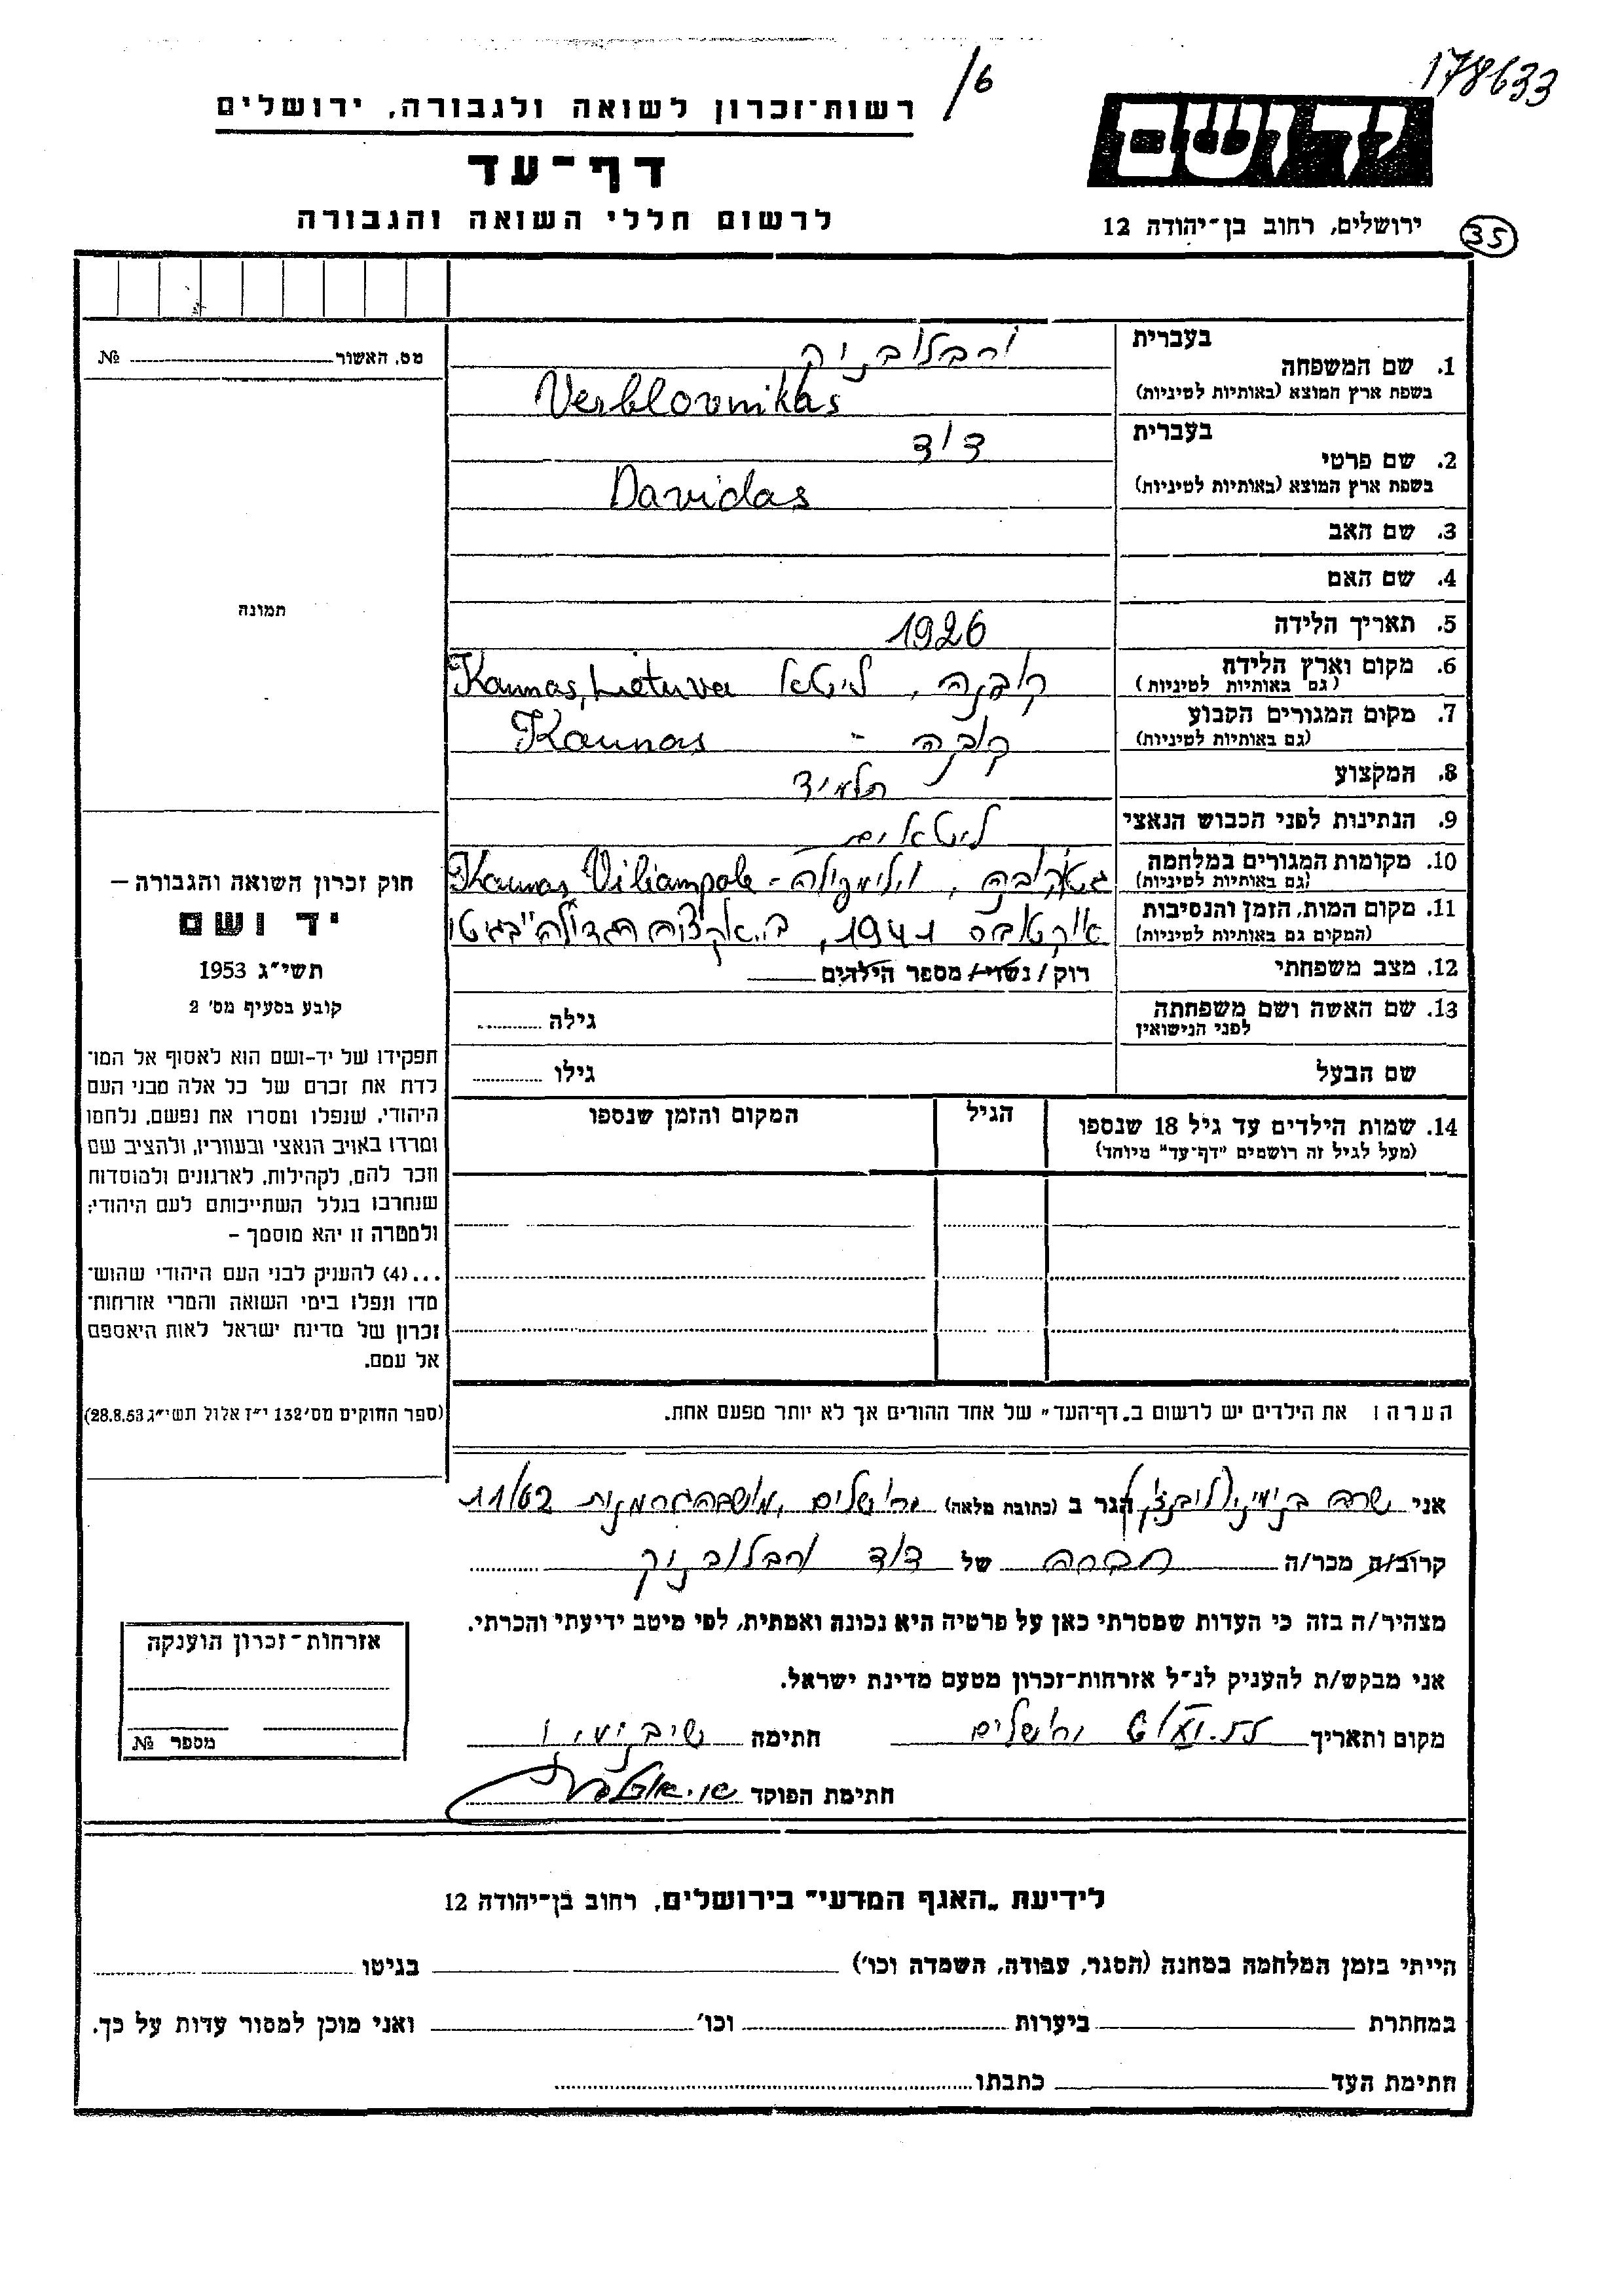 178633
/6
רשות־זכרון לשואה ולגבורה, ירושלים
יד ושם
דף־עד
לרשום חללי השואה והגבורה
ירושלים, רחוב בן־יהודה 12
35
בעברית
1. שם המשפחה
בשפת ארץ המוצא (באותיות לטיניות)
ורבלובניק
Verblovnikas
בעברית
2. שם פרטי
בשפת ארץ המוצא (באותיות לטיניות)
דוד
Davidas
3. שם האב
4. שם האם
5. תאריך הלידה 1926
6. מקום וארץ הלידה קובנה, ליטא Kaunas, Lietuva
(גם באותיות לטיניות)
7. מקום המגורים הקבוע קובנה - Kaunas
(גם באותיות לטיניות)
8. המקצוע תלמיד
9. הנתינות לפני הכבוש הנאצי ליטאית
10. מקומות המגורים במלחמה גטו קובנה, וילימפולה - Kaunas Viliampole
(גם באותיות לטיניות)
11. מקום המות, הזמן והנסיבות אוקטובר 1941, ב„אקציה הגדולה" בגיטו
(המקום גם באותיות לטיניות)
12. מצב משפחתי רוק / נשוי / מספר הילדים
13. שם האשה ושם משפחתה גילה
לפני הנישואין
שם הבעל גילו
14. שמות הילדים עד גיל 18 שנספו הגיל המקום והזמן שנספו
(מעל לגיל זה רושמים "דף־עד" מיוחד)
הערה: את הילדים יש לרשום ב„דף־העד" של אחד ההורים אך לא יותר מפעם אחת.
מס. האשור №
תמונה
חוק זכרון השואה והגבורה –
יד ושם
תשי"ג 1953
קובע בסעיף מס' 2
תפקידו של יד-ושם הוא לאסוף אל המו־
לדת את זכרם של כל אלה מבני העם
היהודי, שנפלו ומסרו את נפשם, נלחמו
ומרדו באויב הנאצי ובעוזריו, ולהציב שם
וזכר להם, לקהילות, לארגונים ולמוסדות
שנחרבו בגלל השתייכותם לעם היהודי;
ולמטרה זו יהא מוסמך –
...(4) להעניק לבני העם היהודי שהוש־
מדו ונפלו בימי השואה והמרי אזרחות־
זכרון של מדינת ישראל לאות היאספם
אל עמם.
(ספר החוקים מס' 132 י"ז אלול תשי"ג 28.8.53)
אני שרה בנימיני הגר ב (כתובת מלאה) ירושלים, מושבה גרמנית 11/62
קרוב/ה מכר/ה חברה של דוד ורבלובניק
מצהיר/ה בזה כי העדות שמסרתי כאן על פרטיה היא נכונה ואמתית, לפי מיטב ידיעתי והכרתי.
אני מבקש/ת להעניק לנ"ל אזרחות־זכרון מטעם מדינת ישראל.
מקום ותאריך ירושלים חתימה
חתימת הפוקד
אזרחות־זכרון הוענקה
מספר №
לידיעת „האגף המדעי" בירושלים, רחוב בן־יהודה 12
הייתי בזמן המלחמה במחנה (הסגר, עבודה, השמדה וכו') בגיטו
במחתרת ביערות וכו' ואני מוכן למסור עדות על כך.
חתימת העד כתבתו